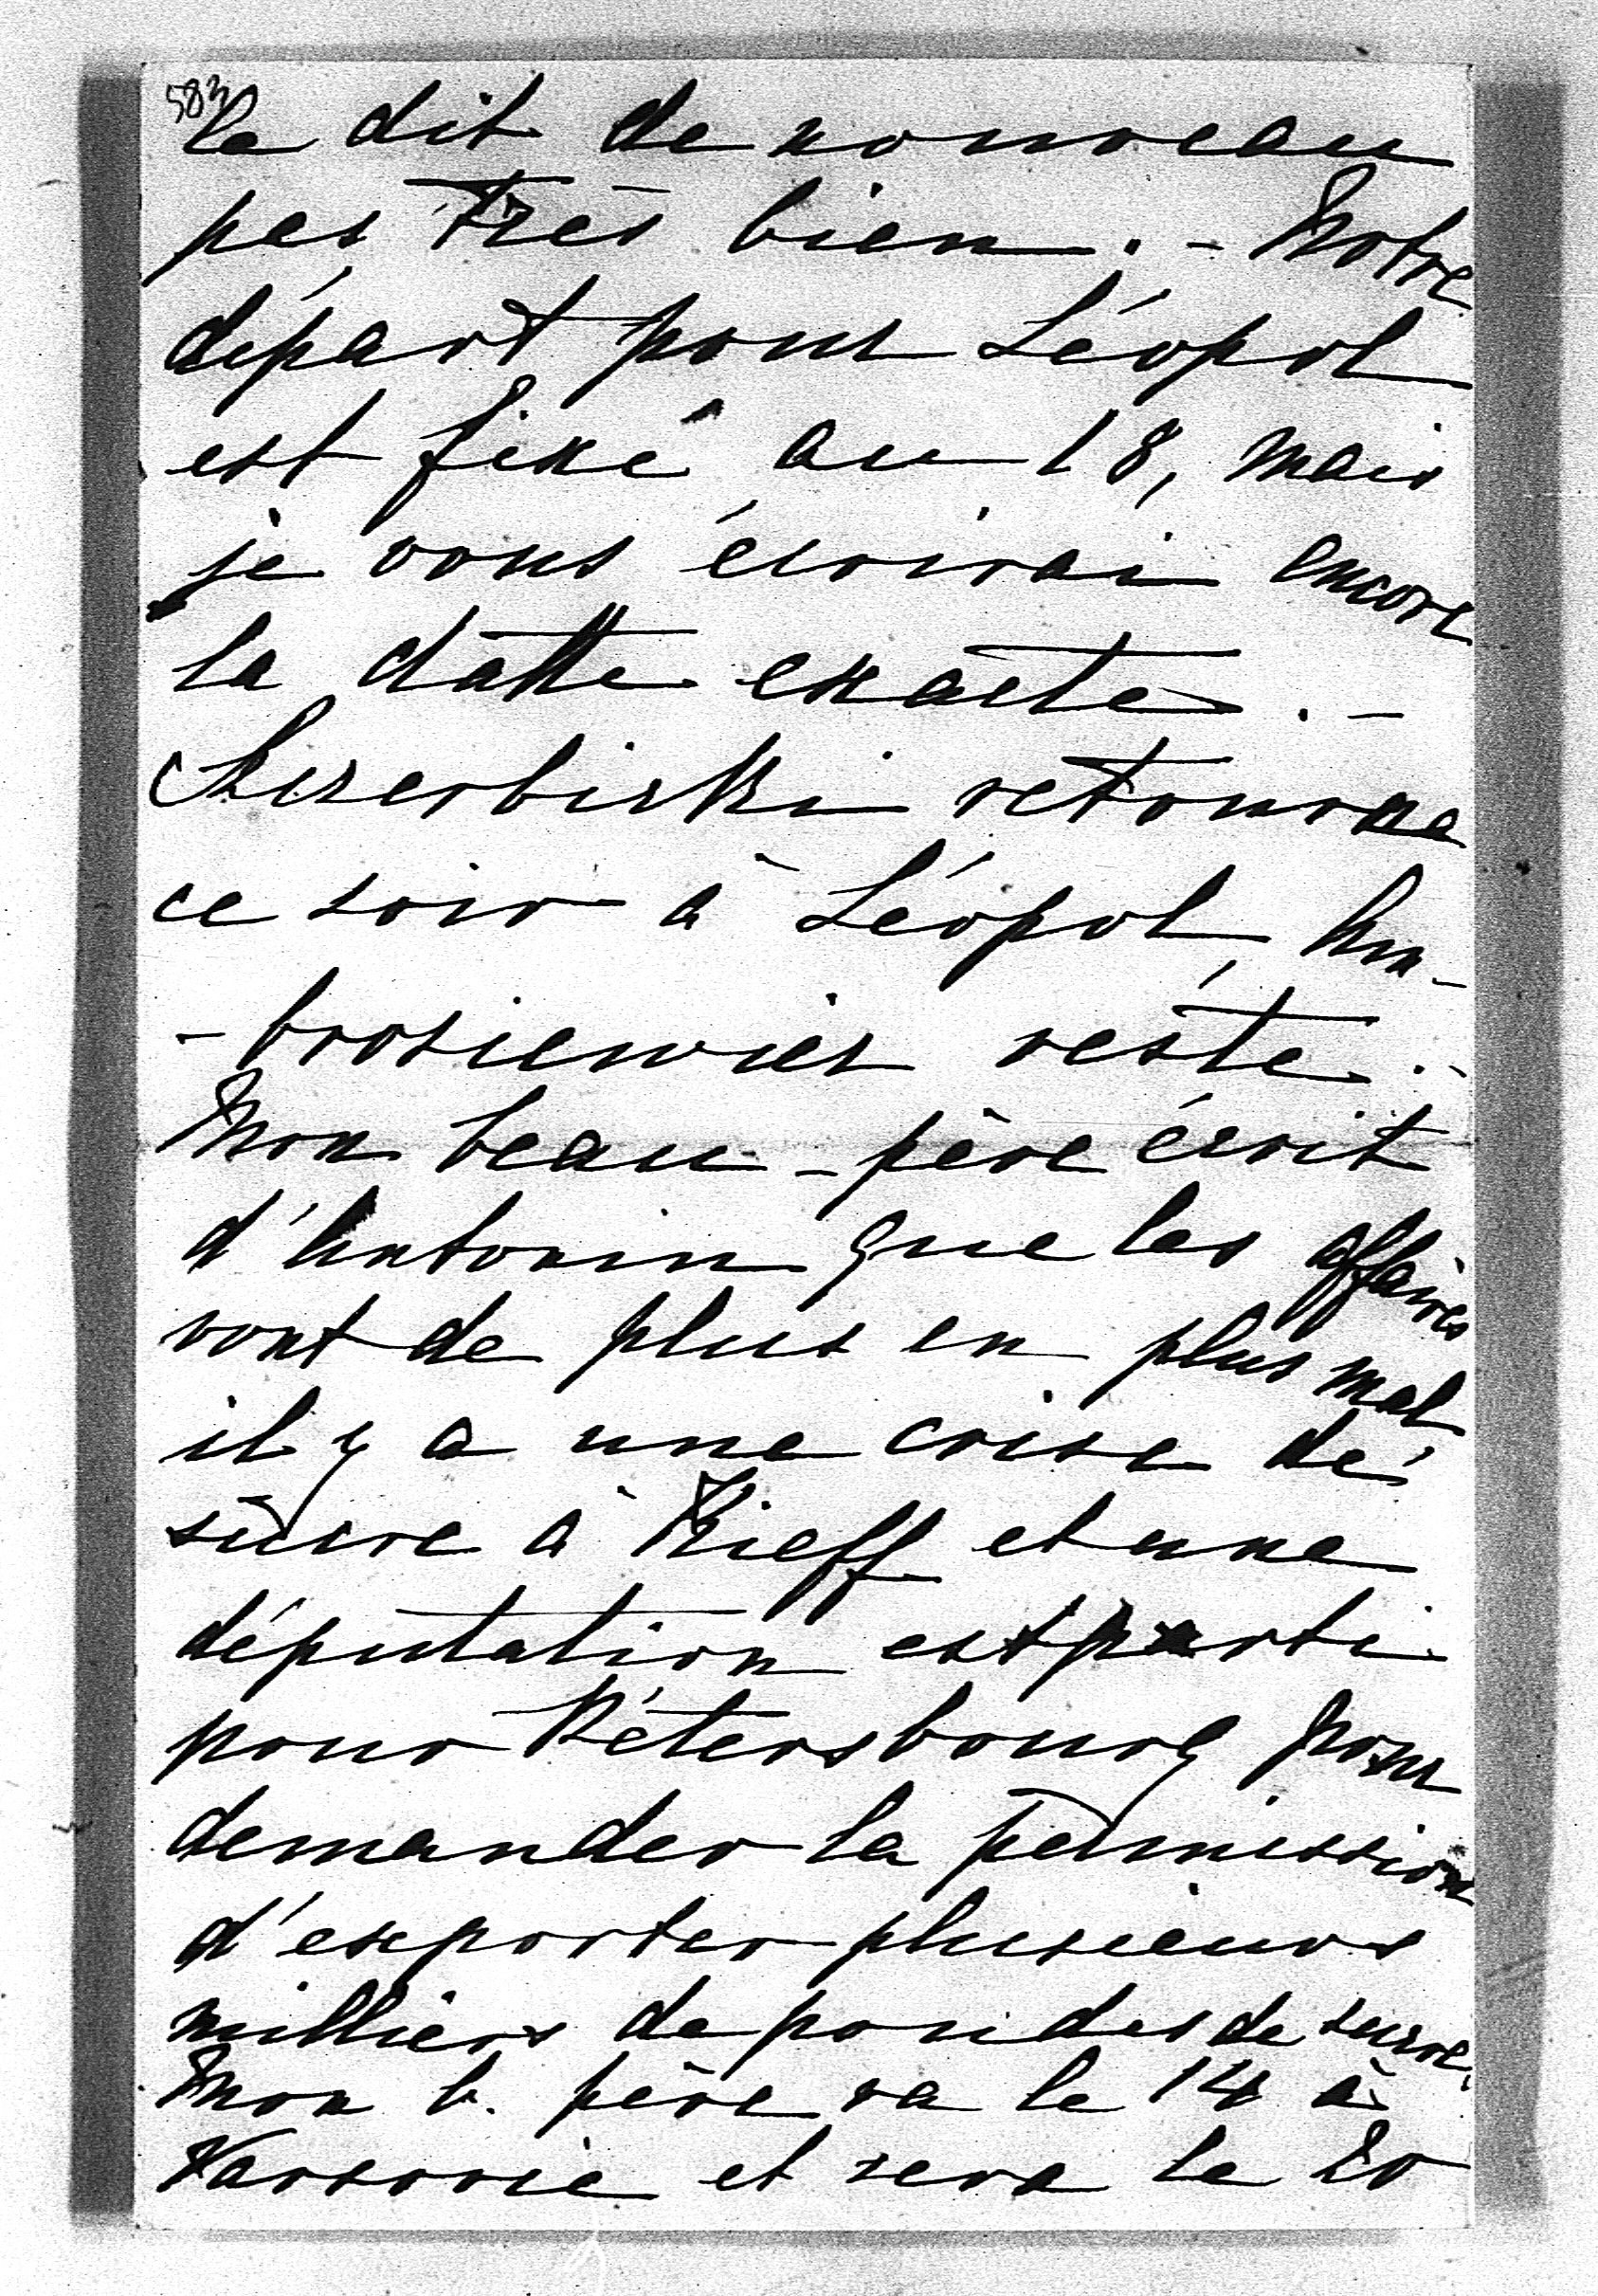 583
le dit de nouveau
pas très bien. - Notre
départ pour Léopol
est fixé au 18, mais
je vous écrirai encore
la datte exacte. -
retourne
ce soir à Léopol, Am-
-brosiewicz reste. -
Mon beau-père écrit
d'Antonin que les affaires
vont de plus en plus mal
il y a une crise de
sucre à Kieff et une
députation est parti
pour Pétersbourg pour
demander la permission
d'exporter plusieurs
milliers de poudes de sucre.
Mon b. père va le 14 à
Varsovie et sera le 20